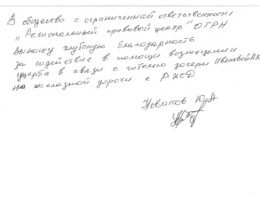 В общество с ограниченной ответственностью
"Региональный правовой центр" ОГРН
Выношу глубокую благодарность
за содействие в помощи возмещении
ущерба в связи с гибелью дочери
на железной дороге с РЖД
Новиков Ю.А